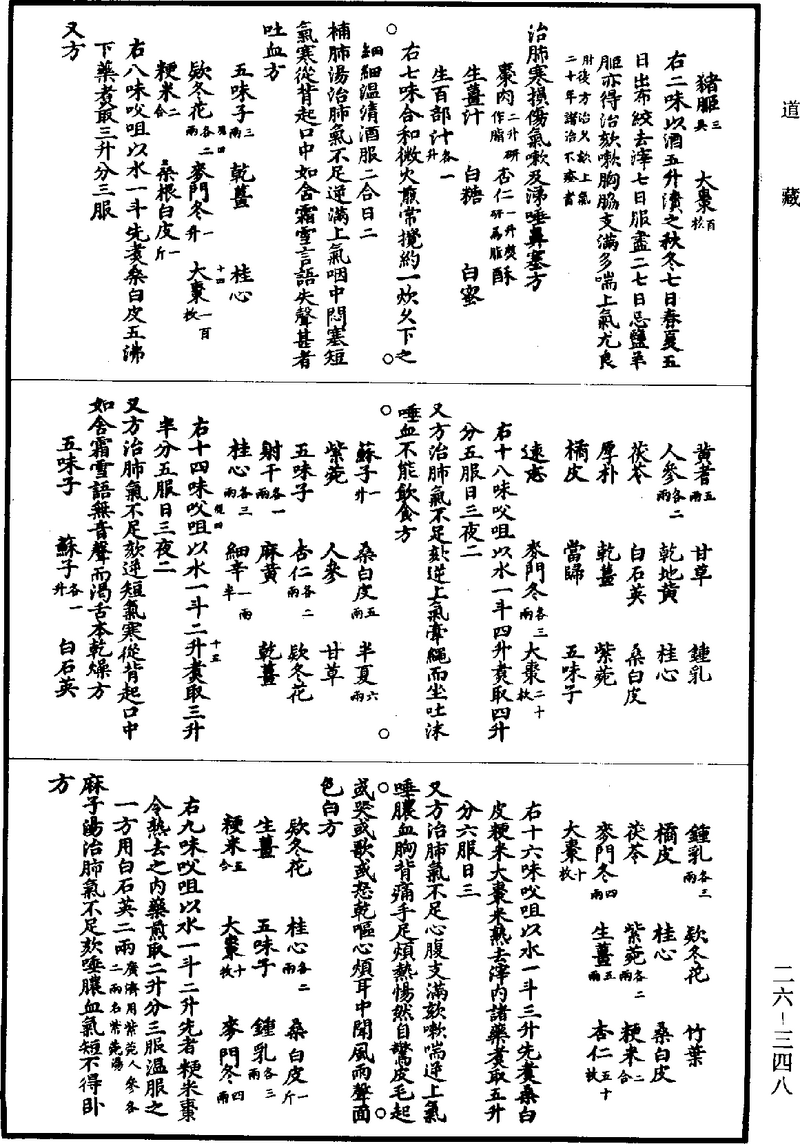 道藏
猪胰三具　大棗百枚
右二味以酒五升漬之秋冬七日春夏五
日出布絞去滓七日服盡二七日忌鹽羊
胰亦得治欬嗽胸脇支滿多喘上氣尤良
肘後方治久欬上氣
二十年諸治不瘥者
治肺寒損傷氣嗽及涕唾鼻塞方
棗肉二升研作脂　杏仁一升熬研爲脂　酥
生薑汁　白糖　白蜜
生百部汁各一升
右七味合和微火煎常攪約一炊久下之
細細溫清酒服二合日二
楠肺湯治肺氣不足逆滿上氣咽中悶塞短
氣寒從背起口中如含霜雪言語失聲甚者
吐血方
五味子三兩　乾薑　桂心
欵冬花各二兩　麥門冬一升　大棗一百枚
粳米二合　桑根白皮一斤
右八味㕮咀以水一斗先煑桑白皮五沸
下藥煑取三升分三服
又方
黃蓍五兩　甘草　鍾乳
人參各二兩　乾地黃　桂心
茯苓　白石英　桑白皮
厚朴　乾薑　紫菀
橘皮　當歸　五味子
遠志　麥門冬各三兩　大棗二十枚
右十八味㕮咀以水一斗四升煑取四升
分五服日三夜二
又方治肺氣不足欬逆上氣牽繩而坐吐沫
唾血不能飲食方
蘇子一升　桑白皮五兩　半夏六兩
紫菀　人參　甘草
五味子　杏仁各二兩　欵冬花
射干各一兩　麻黃　乾薑
桂心各三兩　細辛一兩半
右十四味㕮咀以水一斗二升煑取三升
半分五服日三夜二
又方治肺氣不足欬逆短氣寒從背起口中
如含霜雪語無音聲而渴舌本乾燥方
五味子　蘇子各一升　白石英
鍾乳各三兩　欵冬花　竹葉
橘皮　桂心　桑白皮
茯苓　紫菀各二兩　粳米二合
麥門冬四兩　生薑五兩　杏仁五十枚
大棗十枚
右十六味㕮咀以水一斗三升先煑桑白
皮粳米大棗米熟去滓內諸藥煑取五升
分六服日三
又方治肺氣不足心腹支滿欬嗽喘逆上氣
唾膿血胸背痛手足煩熱惕然自驚皮毛起
或哭或歌或怒乾嘔心煩耳中聞風雨聲面
色白方
欵冬花　桂心各二兩　桑白皮一斤
生薑　五味子　鍾乳各三兩
粳米五合　大棗十枚　麥門冬四兩
右九味㕮咀以水一斗二升先煑粳米棗
令熱去之內藥煎取二升分三服溫服之
一方用白石英二兩廣濟用紫菀人參各二兩名紫菀湯
麻子湯治肺氣不足欬唾膿血氣短不得卧
方
二六-三四八